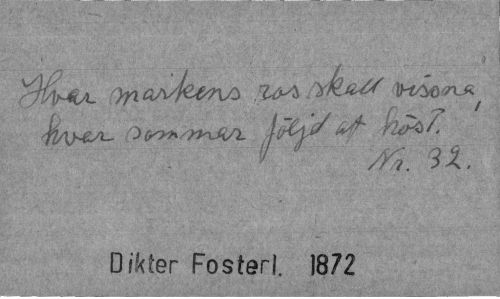 Hvar markens ros skall vissna,
hvar sommar följd af höst.
Nr. 32.
Dikter Fosterl. 1872